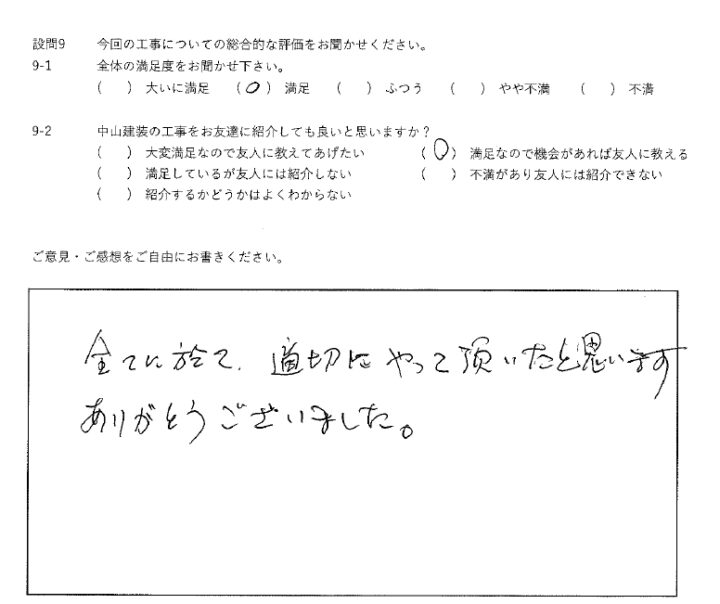 設問9 今回の工事についての総合的な評価をお聞かせください。
9-1 全体の満足度をお聞かせ下さい。
( ) 大いに満足 (○) 満足 ( ) ふつう ( ) やや不満 ( ) 不満
9-2 中山建装の工事をお友達に紹介しても良いと思いますか?
( ) 大変満足なので友人に教えてあげたい (○) 満足なので機会があれば友人に教える
( ) 満足しているが友人には紹介しない ( ) 不満があり友人には紹介できない
( ) 紹介するかどうかはよくわからない
ご意見・ご感想をご自由にお書きください。
全てに於て、適切にやって頂いたと思います
ありがとうございました。